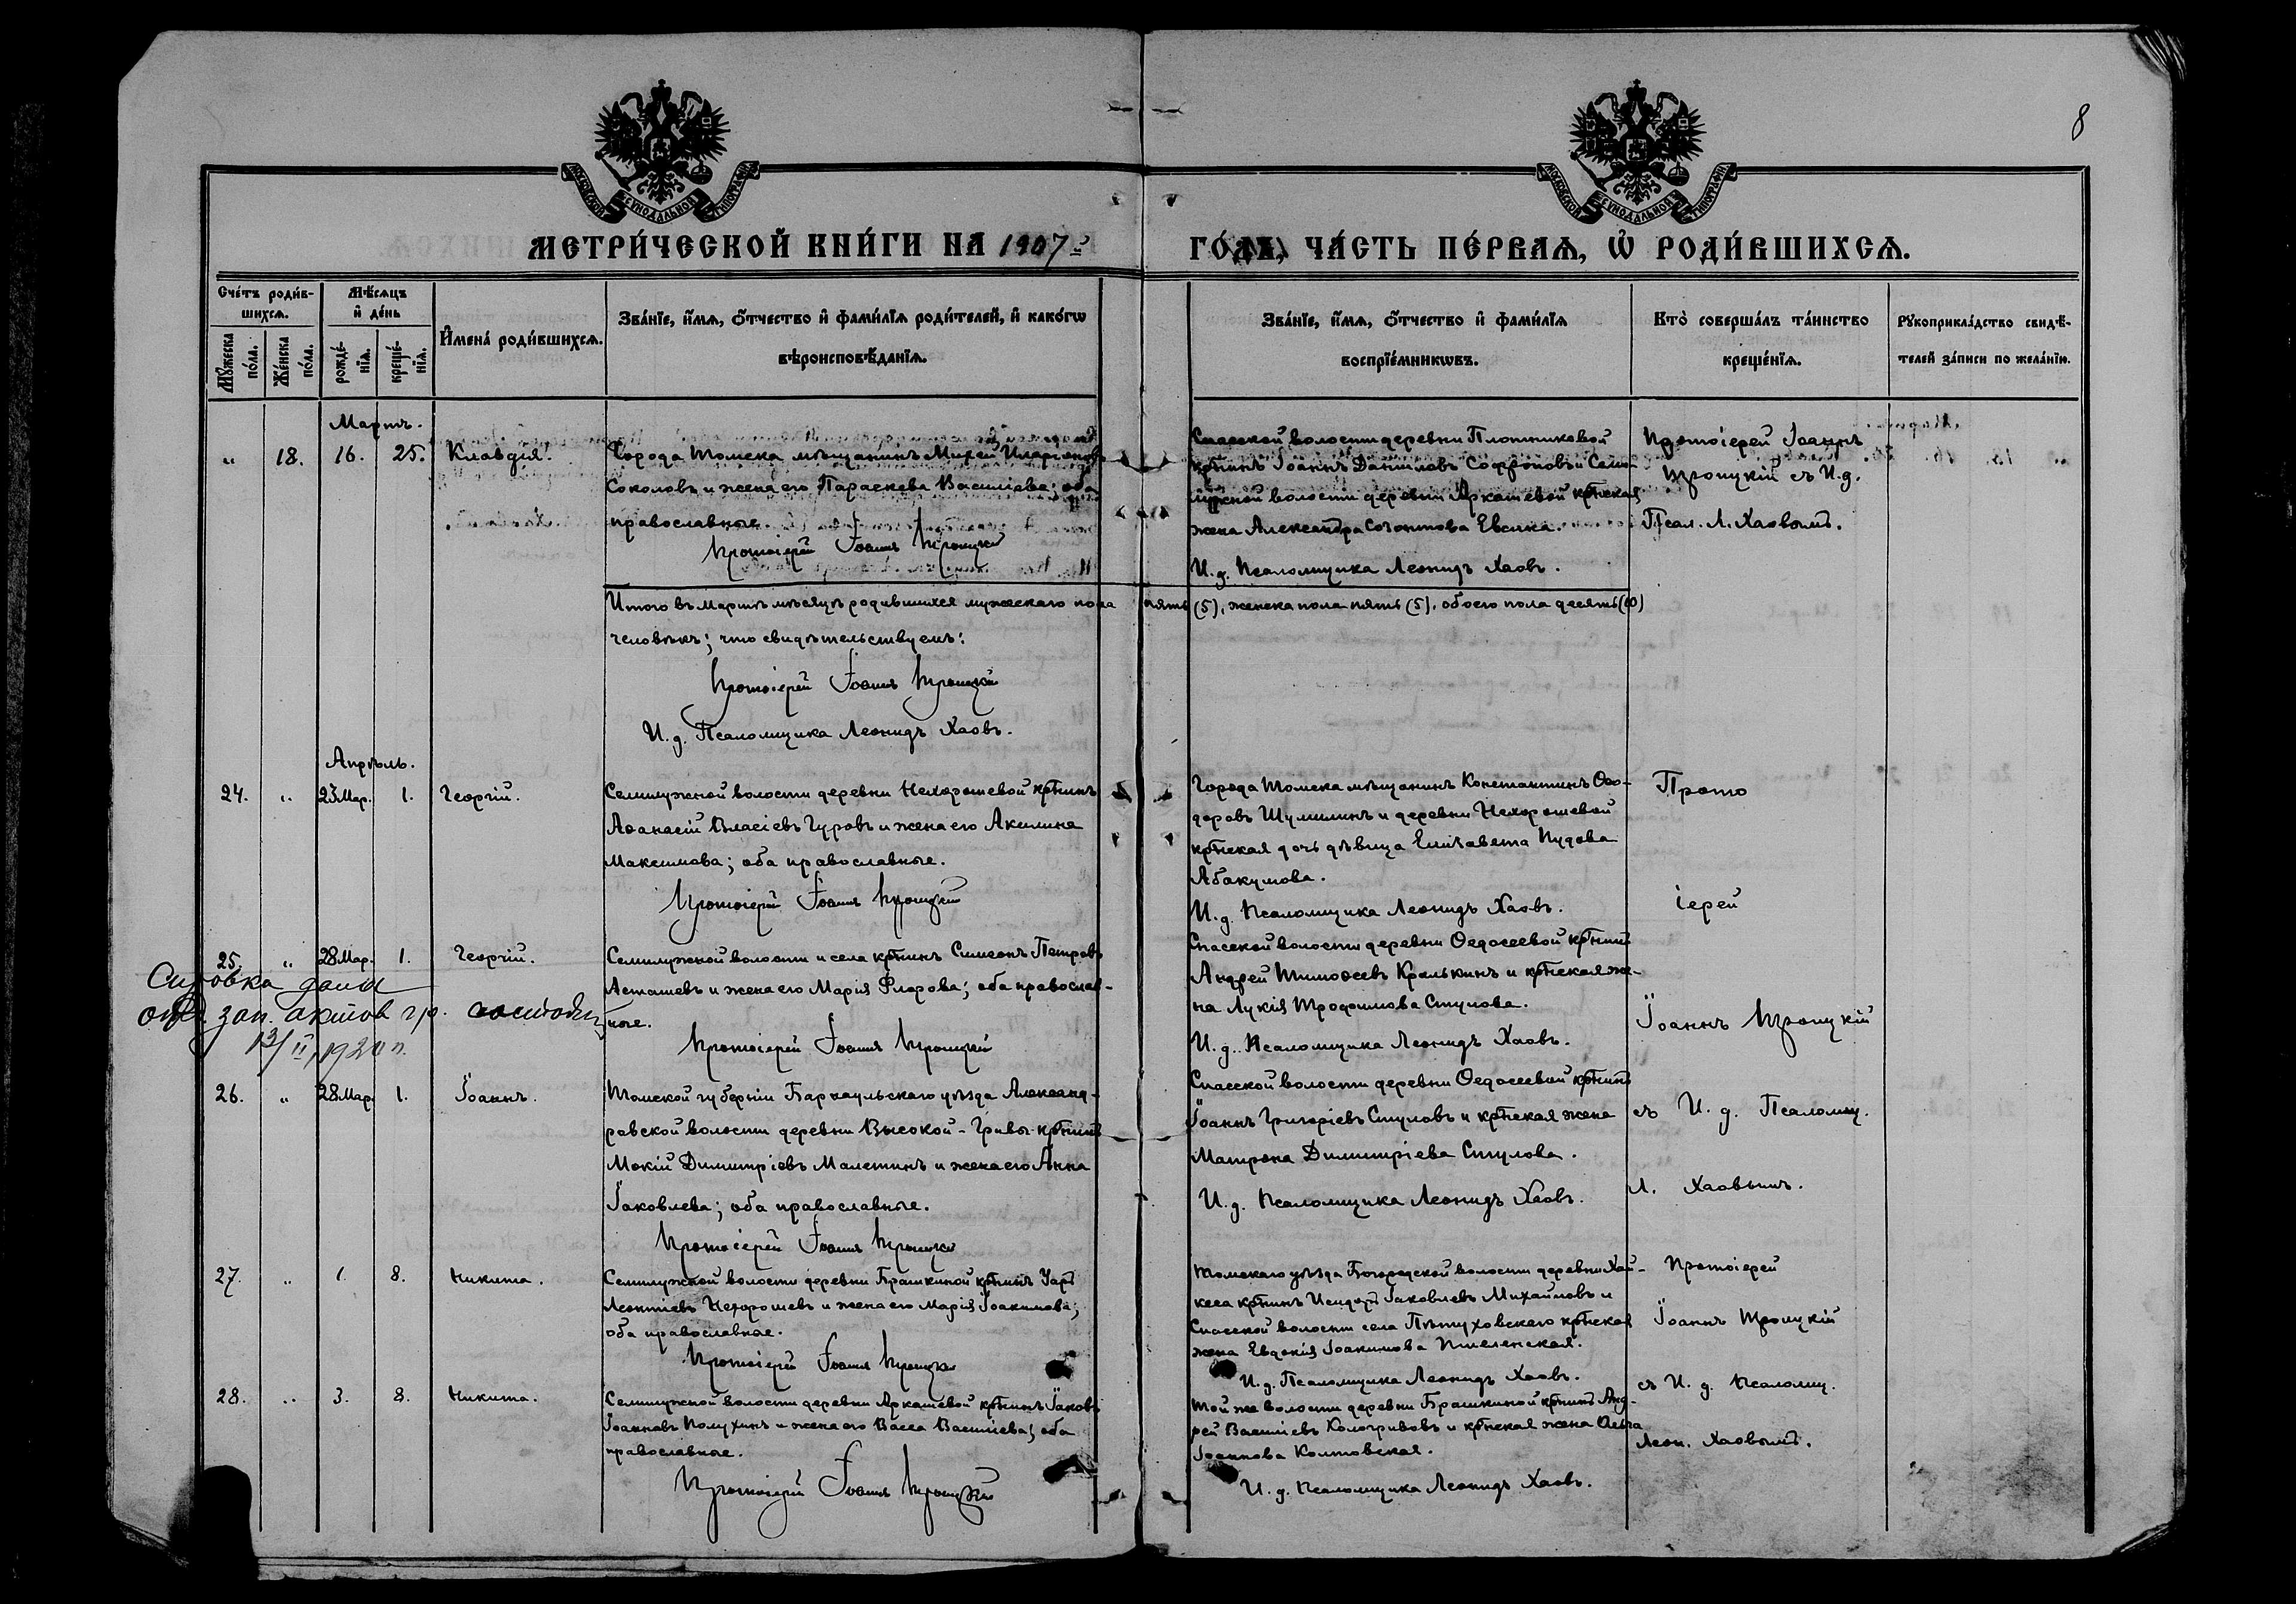 8
МОСКОВСКОЙ СѴНОДАЛЬНОЙ ТИПОГРАФІИ
МОСКОВСКОЙ СѴНОДАЛЬНОЙ ТИПОГРАФІИ
МЕТРИ́ЧЕСКОЙ КНИ́ГИ НА 1907й ГО́ДЪ, ЧА́СТЬ ПЕ́РВАѦ, Ѡ҆ РОДИ́ВШИХСѦ.
Сче́тъ роди́в-
шихсѧ.
Мꙋжеска по́ла.
Же́нска по́ла.
Мѣ́сѧцъ
и҆ де́нь
рожде́-нїѧ.
креще́-нїѧ.
И҆мена̀ роди́вшихсѧ.
Зва́нїе, и҆́мѧ, ѻ҆́тчество и҆ фами́лїѧ роди́телей, и҆ како́гѡ
вѣроисповѣ́данїѧ.
Зва́нїе, и҆́мѧ, ѻ҆́тчество и҆ фами́лїѧ
воспрїе́мникѡвъ.
Кто̀ соверша́лъ та́инство
креще́нїѧ.
Рꙋкоприкла́дство свидѣ́-
телей за́писи по жела́нїю.
Мартъ.
" 18. 16. 25. Клавдія.
Города Томска мѣщанинъ Михей Иларіоновъ
Соколовъ и жена его Параскева Василіева; оба
православные.
Протоіерей Іоаннъ Троицкій
Спасской волости деревни Плотниковой
кр̃нинъ Іоаннъ Даниловъ Софроновъ и Семи-
лужной волости деревни Аркашевой кр̃нская
жена Александра Созонтова Евсина.
И. д. Псаломщика Леонидъ Хаовъ.
Протоіерей Іоаннъ
Троицкій съ И. д.
Псал. Л. Хаовымъ.
Итого въ Мартѣ мѣсяцѣ родившихся мужескаго пола пять (5), женска пола пять (5), обоего пола десять (10)
человѣкъ; что свидѣтельствуемъ:
Протоіерей Іоаннъ Троицкій
И. д. Псаломщика Леонидъ Хаовъ.
Апрѣль.
24. " 23 Мар. 1. Георгій.
Семилужной волости деревни Нехорошевой кр̃нинъ
Аѳанасій Власіевъ Гуровъ и жена его Акилина
Максимова; оба православные.
Протоіерей Іоаннъ Троицкій
Города Томска мѣщанинъ Константинъ Ѳео-
доровъ Шумилинъ и деревни Нехорошевой
кр̃нская дочь дѣвица Елизавета Пудова
Абакумова.
И. д. Псаломщика Леонидъ Хаовъ.
Прото
іерей
25. " 28 Мар. 1. Георгій.
Справка дана
отд. зап. актов гр. состоян
13/II 1920 г.
Семилужной волости и села кр̃нинъ Симеонъ Петровъ
Асташевъ и жена его Марія Флорова; оба православ-
ные.
Протоіерей Іоаннъ Троицкій
Спасской волости деревни Ѳедосеевой кр̃нинъ
Андрей Тимоѳеевъ Кралькинъ и кр̃нская же-
на Лукія Трофимова Стулова.
И. д. Псаломщика Леонидъ Хаовъ.
Іоаннъ Троицкій
26. " 28 Мар. 1. Іоаннъ.
Томской губерніи Барнаульскаго уѣзда Александ-
ровской волости деревни Высокой-Гривы кр̃нинъ
Мокій Димитріевъ Малетинъ и жена его Анна
Іаковлева; оба православные.
Протоіерей Іоаннъ Троицкій
Спасской волости деревни Ѳедосеевой кр̃нинъ
Іоаннъ Григоріевъ Стуловъ и кр̃нская жена
Матрона Димитріева Стулова.
И. д. Псаломщика Леонидъ Хаовъ.
съ И. д. Псаломщ.
Л. Хаовымъ.
27. " 1. 8. Никита.
Семилужной волости деревни Брашкиной кр̃нинъ Уаръ
Леонтіевъ Нехорошевъ и жена его Марія Іоакимова;
оба православные.
Протоіерей Іоаннъ Троицкій
Томскаго уѣзда Богородской волости деревни Кай-
кеса кр̃нинъ Исидоръ Іаковлевъ Михайловъ и
Спасской волости села Пѣтуховскаго кр̃нская
жена Евдокія Іоакимова Пшеленская.
И. д. Псаломщика Леонидъ Хаовъ.
Протоіерей
Іоаннъ Троицкій
28. " 3. 8. Никита.
Семилужной волости деревни Аркашевой кр̃нинъ Іаковъ
Іоанновъ Полухинъ и жена его Васса Василіева; оба
православные.
Протоіерей Іоаннъ Троицкій
Той же волости деревни Брашкиной кр̃нинъ Анд-
рей Василіевъ Кологривовъ и кр̃нская жена
Іоаннова Колтовская.
И. д. Псаломщика Леонидъ Хаовъ.
съ И. д. Псаломщ.
Леон. Хаовымъ.